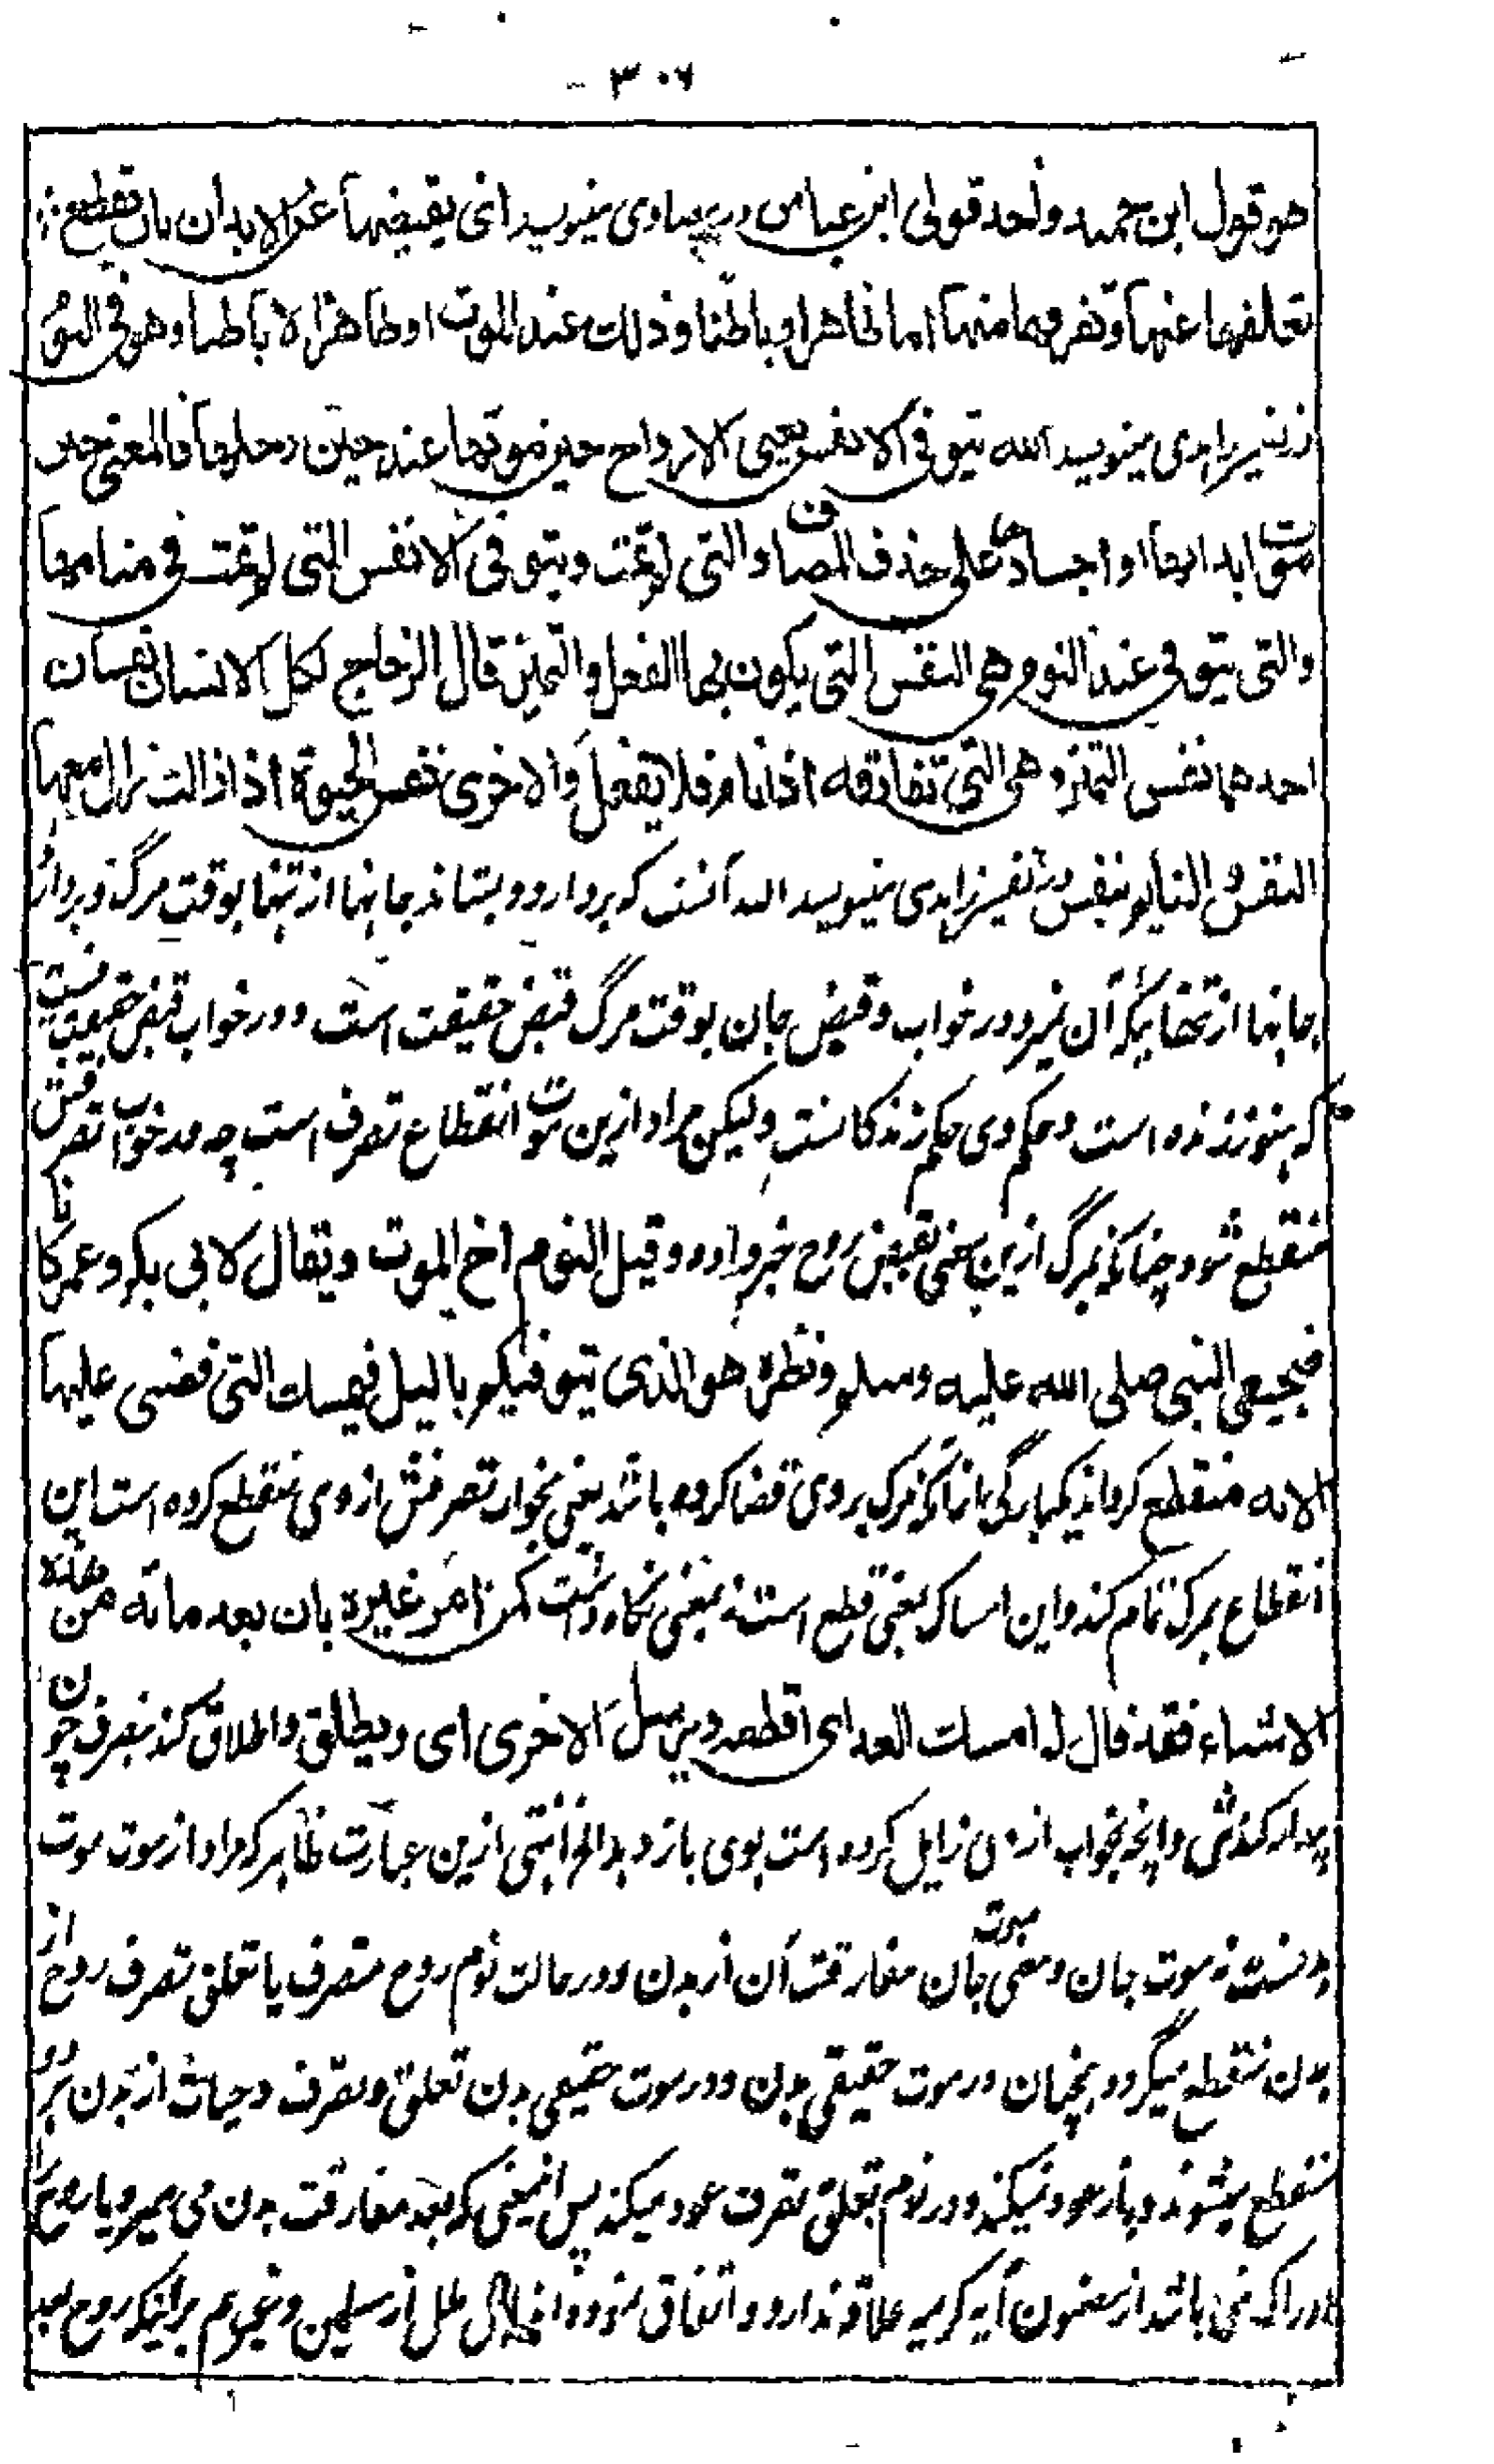 ۳۰۶
هو قول ابن جمید واحد قولی ابن عباس در بیضاوی مینویسد ای یقبضها عن الابدان بان یقطع
تعلقها عنها وتفرفها منها اما ظاهرا وباطنا وذلك عند الموت او ظاهرا لا باطنا وهو فی النوم
در تفسیر زاهدی مینویسد الله یتوفی الانفس یعنی الارواح حین موتها عند حین دخلها فالمعنی حین
موت ابدانها او اجسادها علی حذف المضاف والتی لم تمت ویتوفی الانفس التی لم تمت فی منامها
والتی یتوفی عند النوم هی النفس التی یکون بها الفعل والتمیز قال الزجاج لکل الانسان نفسان
احدهما نفس التمیز وهی التی تفارقه اذا نام فلا یفعل والاخری نفس الحیوة اذا زالت زال معها
النفس والنایم یتنفس در تفسیر زاهدی مینویسد الله آنست که بردارد و بستاند جانها از تنها بوقت مرگ و بردارد
جانها از تنها یکه آن نمیرد در خواب و قبض جان بوقت مرگ قبض حقیقت است و در خواب قبض حقیقت نیست
که هنوز زنده است و حکم وی حکم زندگانست ولیکن مراد ازین توفی انقطاع تصرف است چه در خواب تصرفش
منقطع شود چنانکه بمرگ ازین معنی بقبض روح خبر داده و قیل النوم اخ الموت ویقال لابی بکر وعمر کانا
ضجیعی النبی صلی الله علیه وسلم ونظیره هو الذی یتوفیکم بالیل فیمسك التی قضی علیها
الایه منقطع گرداند یکبارگی بازآنکه مرگ بر وی قضا کرده باشد یعنی بخواب تصرفش از وی منقطع کرده است این
انقطاع بمرگ تمام کند و این امساک بمعنی قطع است نه بمعنی نگاه داشت من غیره بان بعد ماته من هذه
الاشیاء فقد قال امسك العد ای اقطعه ویرسل الاخری ای ویطلق و اطلاق کند بتصرف چون
بیدار کندش و آنچه بخواب از وی زایل کرده است بوی باز دهد الخ انتهی ازین عبارت ظاهر که مراد از موت موت
بدنست نه موت جان و معنی موت جان مفارقت آن از بدن و در حالت نوم روح متصرف یا تعلق تصرف روح از
بدن منقطع میگردد همچنان در موت حقیقی بدن و در موت حقیقی بدن تعلق و تصرف و حیات از بدن هر دو
منقطع میشوند و باز عود نمیکند و در نوم تعلق تصرف عود میکند پس اینمعنی که بعد مفارقت بدن می میرد یا روح را
ادراک نمی باشد از مضمون آیه کریمه علاقه ندارد و اتفاق نموده اند اهل ملل از مسلمین و غیرهم بر اینکه روح بعد